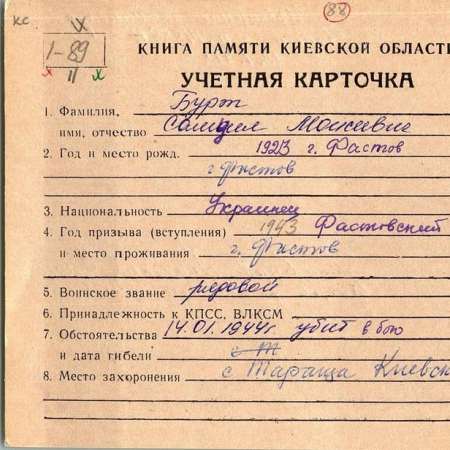 кс IX 88
1-89
х II х
КНИГА ПАМЯТИ КИЕВСКОЙ ОБЛАСТИ
УЧЕТНАЯ КАРТОЧКА
1. Фамилия, Бурт
имя, отчество Моисеевич
2. Год и место рожд. 1923 г. Фастов
г. Фастов
3. Национальность Украинец
4. Год призыва (вступления) 1943 Фастовский
и место проживания г. Фастов
5. Воинское звание рядовой
6. Принадлежность к КПСС, ВЛКСМ
7. Обстоятельства 14.01.1944г. убит в бою
и дата гибели
8. Место захоронения с Тараща Киевск